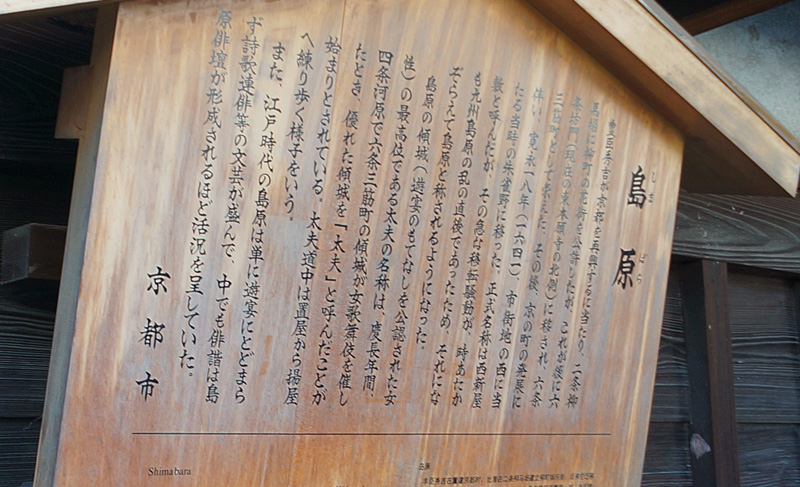 島原
しまばら
豊臣秀吉が京都を再興するに当たり、二条柳
馬場に柳町の花街を公許したが、これが後に六
条坊門(現在の東本願寺の北側)に移され、六条
三筋町として栄えた。その後、京の町の発展に
伴い、寛永一八年(一六四一)市街地の西に当
たる当時の朱雀野に移った。正式名称は西新屋
敷と呼んだが、その急な移転騒動が、時あたか
も九州島原の乱の直後であったため、それにな
ぞらえて島原と称されるようになった。
島原の傾城(遊宴のもてなしを公認された女
性)の最高位である太夫の名称は、慶長年間、
四条河原で六条三筋町の傾城が女歌舞伎を催し
たとき、優れた傾城を「太夫」と呼んだことが
始まりとされている。太夫道中は置屋から揚屋
へ練り歩く様子をいう。
また、江戸時代の島原は単に遊宴にとどまら
ず詩歌連俳等の文芸が盛んで、中でも俳諧は島
原俳壇が形成されるほど活況を呈していた。
京都市
Shimabara